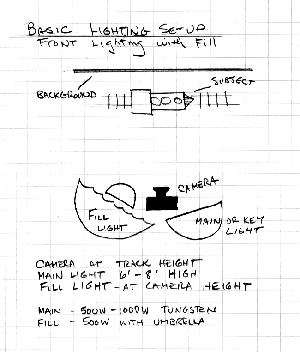 BASIC LIGHTING SETUP
FRONT Lighting with Fill
BACKGROUND
SUBJECT
CAMERA
FILL
LIGHT
MAIN OR KEY
LIGHT
CAMERA AT TRACK HEIGHT
MAIN LIGHT 6'-8' HIGH
FILL LIGHT - AT CAMERA HEIGHT
MAIN - 500W-1000W TUNGSTEN
FILL - 500W WITH UMBRELLA